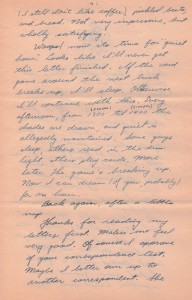 (I still don't like coffee) pickled beets,
and bread. Not very impressive, but
wholly satisfying.
Whoops! now its time for quiet
hour. Looks like I'll never get
this letter finished. If the card
game around the next bunk
breaks up, I'll sleep. Otherwise
I'll continue with this. Every
afternoon, from 1300 to 1400 the
shades are drawn, and quiet is
allegedly maintained. Some guys
sleep, others read in the dim
light, others play cards. More
later. The game's breaking up.
Now I can dream (of you, probably)
for an hour.
Back again, after a little
nap.
Thanks for reading my
letters first. Makes me feel
very good. Of course I approve
of your correspondence test.
Maybe I better own up to
another correspondent. The